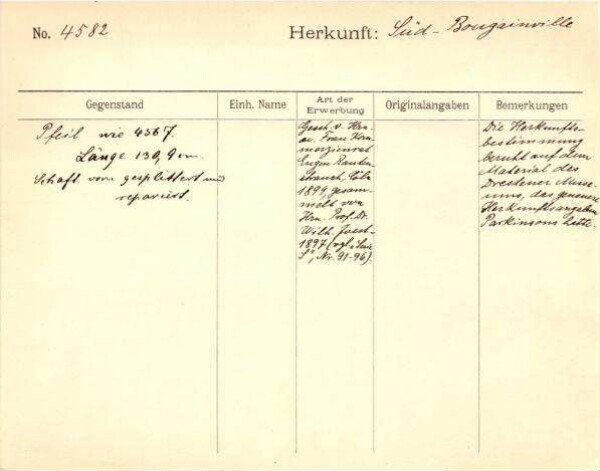 No. 4582
Herkunft: Süd-Bougainville
Gegenstand
Einh. Name
Art der Erwerbung
Originalangaben
Bemerkungen
Pfeil wie 4567.
Länge 130,9 cm.
Schaft vorn gesplittert und
repariert.
Gesch. v. Hrn.
u. Frau Kom
merzienrat
Eugen Rauten
strauch, Cöln
1899, gesam-
melt von
Hrn. Prof. Dr.
Wilh. Joest
1897 (vgl.
Nr. 91-96).
Die Herkunfts-
bestimmung
beruht auf dem
Material des
Dresdener Muse-
ums, das genauere
Herkunftsangaben
Parkinsons hatte.